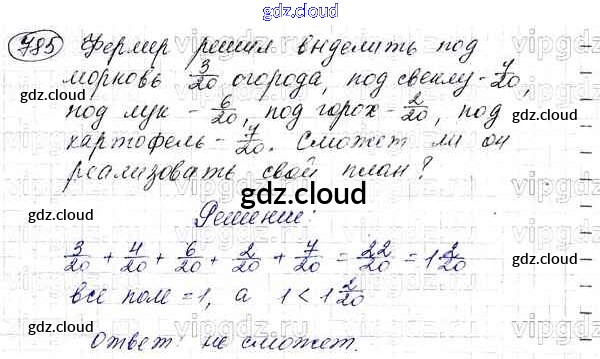 gdz.cloud
785 Фермер решил выделить под
морковь 3/20 огорода, под свеклу - 4/20,
под лук - 6/20, под горох - 2/20, под
картофель - 7/20. Сможет ли он
реализовать свой план?
gdz.cloud
Решение:
3/20 + 4/20 + 6/20 + 2/20 + 7/20 = 22/20 = 1 2/20
все поле = 1, а 1 < 1 2/20
Ответ: не сможет.
gdz.cloud
gdz.cloud
gdz.cloud
gdz.cloud
gdz.cloud
gdz.cloud
gdz.cloud
gdz.cloud
gdz.cloud